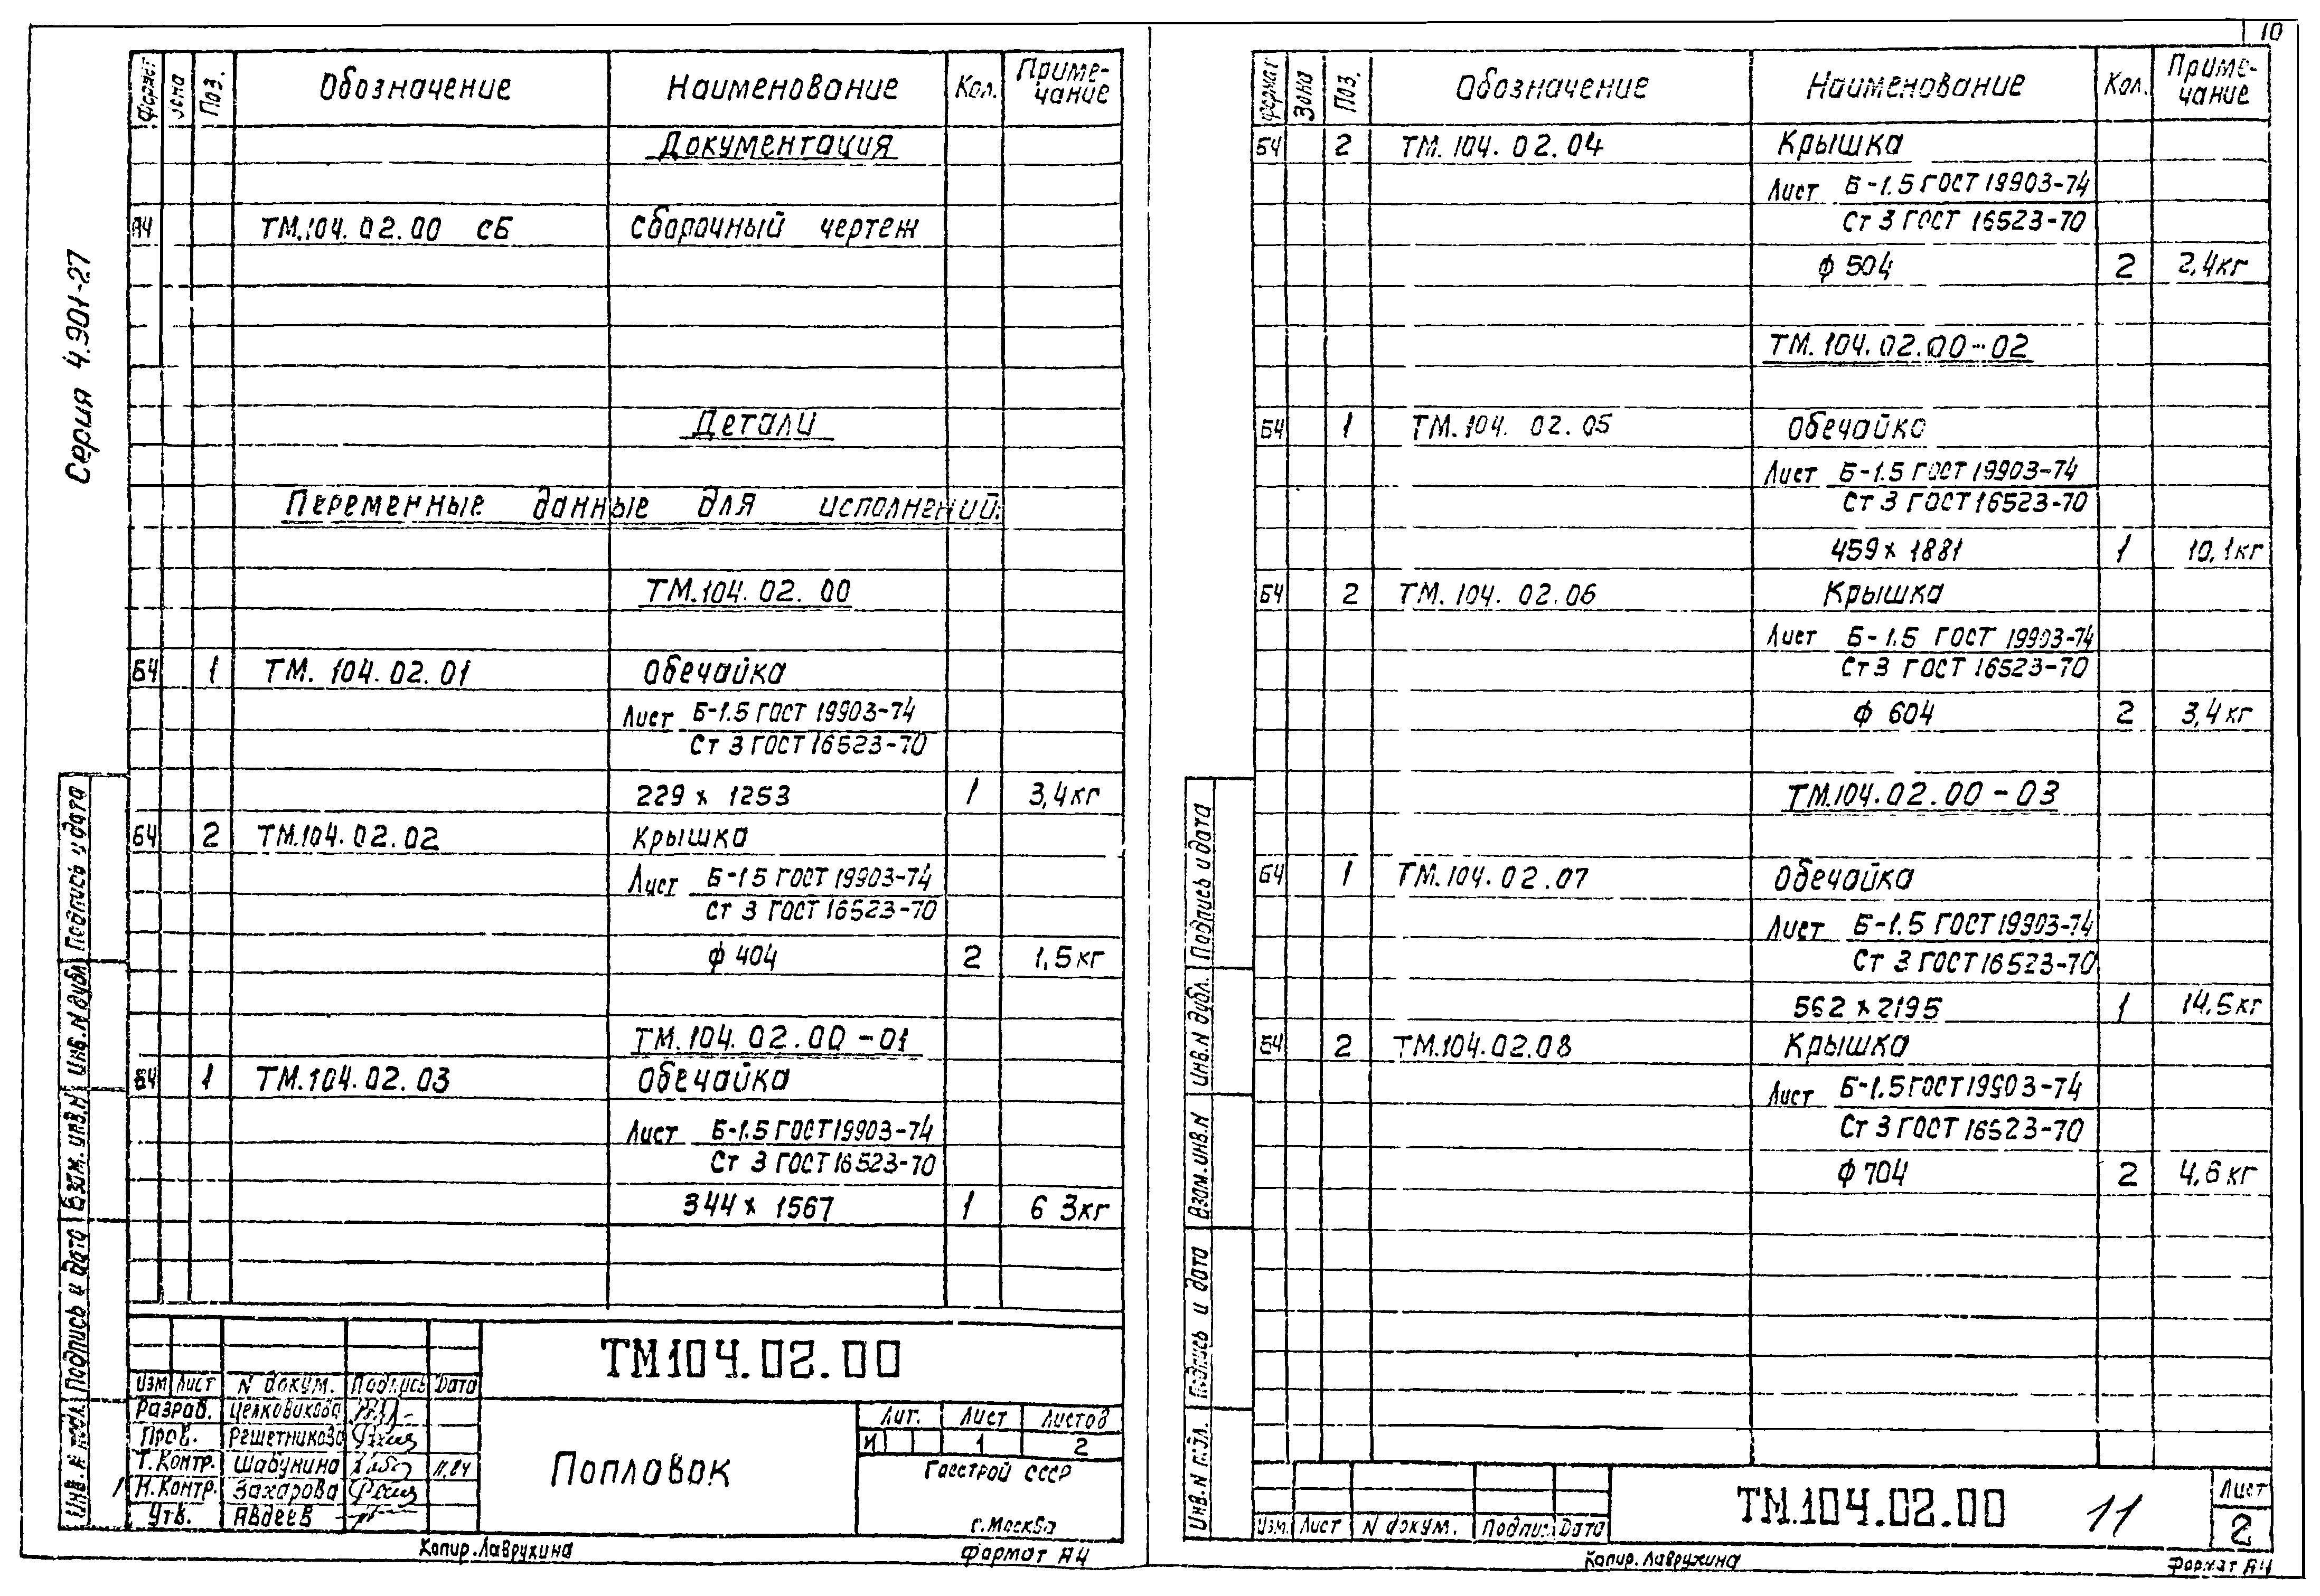 10
Серия 4.901-27
Формат Зона Поз. Обозначение Наименование Кол. Приме-
чание
Документация
А4 ТМ.104.02.00 СБ Сборочный чертеж
Детали
Переменные данные для исполнений:
ТМ.104.02.00
Б4 1 ТМ.104.02.01 Обечайка
Лист Б-1.5 ГОСТ 19903-74
Ст 3 ГОСТ 16523-70
229 х 1253 1 3,4кг
Б4 2 ТМ.104.02.02 Крышка
Лист Б-1 5 ГОСТ 19903-74
Ст 3 ГОСТ 16523-70
ф 404 2 1,5кг
ТМ.104.02.00-01
Б4 1 ТМ.104.02.03 Обечайка
Лист Б-1.5 ГОСТ 19903-74
Ст 3 ГОСТ 16523-70
344 х 1567 1 6 3кг
Инв. N подл. Подпись и дата Взам. инв. N Инв. N дубл. Подпись и дата
ТМ104.02.00
Изм Лист N докум. Подпись Дата
Разраб. Целковикова
Пров. Решетникова
Т.Контр. Шабунина 11.84
Н.Контр. Захарова
Утв. Авдеев
Поплавок
Лит. Лист Листов
И 1 2
Госстрой СССР
г.Москва
1
Копир. Лаврухина
Формат А4
Формат Зона Поз. Обозначение Наименование Кол. Приме-
чание
Б4 2 ТМ.104.02.04 Крышка
Лист Б-1.5 ГОСТ 19903-74
Ст 3 ГОСТ 16523-70
ф 504 2 2,4кг
ТМ.104.02.00-02
Б4 1 ТМ.104.02.05 Обечайка
Лист Б-1.5 ГОСТ 19903-74
Ст 3 ГОСТ 16523-70
459 х 1881 1 10,1кг
Б4 2 ТМ.104.02.06 Крышка
Лист Б-1.5 ГОСТ 19903-74
Ст 3 ГОСТ 16523-70
ф 604 2 3,4кг
ТМ.104.02.00-03
Б4 1 ТМ.104.02.07 Обечайка
Лист Б-1.5 ГОСТ 19903-74
Ст 3 ГОСТ 16523-70
562 х 2195 1 14,5кг
Б4 2 ТМ.104.02.08 Крышка
Лист Б-1.5 ГОСТ 19903-74
Ст 3 ГОСТ 16523-70
ф 704 2 4,6кг
Инв. N подл. Подпись и дата Взам. инв. N Инв. N дубл. Подпись и дата
Изм. Лист N докум. Подпись Дата
ТМ.104.02.00
11
Лист
2
Копир. Лаврухина
Формат А4